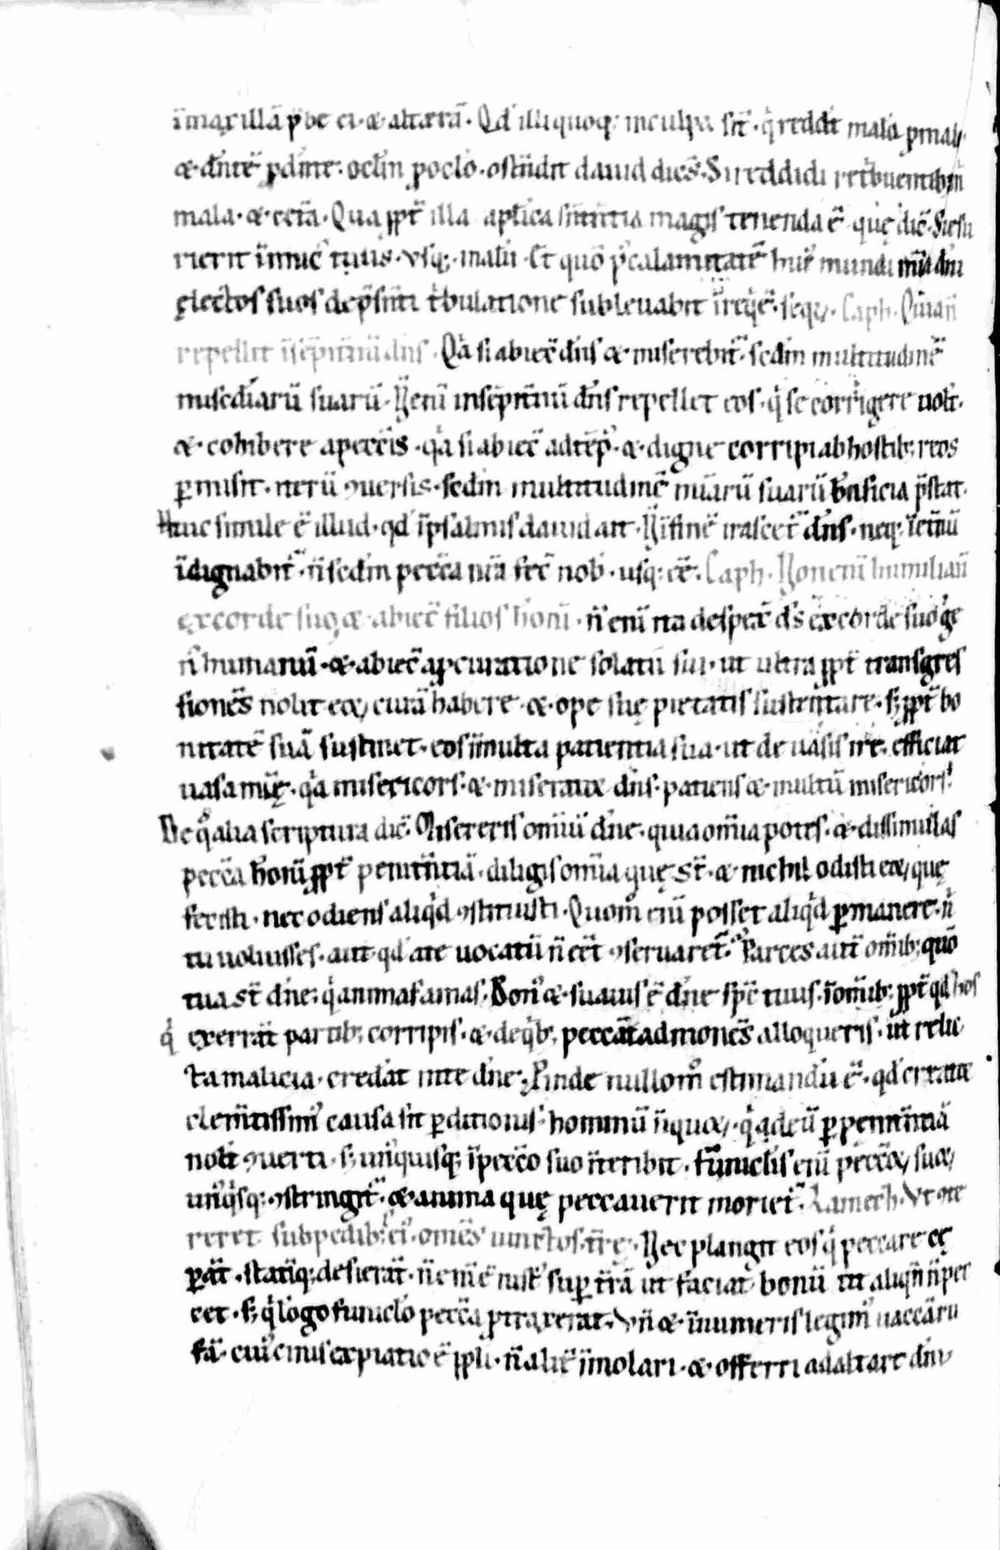 īmaxillā p̄be ei· ⁊ alterā· Qd̄ illi quoq; inculpa st̄· q̓ reddt̄ mala p mal
⁊ dn̄tē p dn̄te· oclm̄ p oclo· ostndit dauid dicēs· Si reddidi retbuentib; m̄
mala· ⁊ cet̄a· Quapp̄t illa aplica sn̄tntia magis tenenda ē quę dic̄·
rierit īmic̄ tuus· usq; malū· Et quō p calamitatē hui̓ mundi
electos suos de p̄snti t̄bulatione subleuabit īreqē· seq̄· Caph· Quia n̄
repellit īsēpitnū dn̄s· Qa si abiec̄ dn̄s ⁊ miserebit̄ sedm̄ multitudinē
miseẖiarū suarū· Nenī insēpitnū dn̄s repellet eos· q̓ se corrigere uolt·
⁊ cohibere apeccīs· qa si abiec̄ adtēp̓· ⁊ digne corripi ab hostib; reos
pmisit· iterū ɔuersis· sedm̄ multitudinē miārū suarū bn̄ficia p̄stat·
Huic simile ē illud· qd īpsalmis dauid ait· N̄ īfinē irascet̄ dn̄s· neq; īetnū
īdignabit̄· n̄ sedm̄ peccā nrā fec̄ nob̄· usq; cē· Caph· Non enī humiliaū
ex corde suo ⁊ abiec̄ filios hom̄· n̄ enī ita despex̄ ds̄ ex corde suo ge
n̓ humanū· ⁊ abiec̄ apcuratione solatū sui· ut ultra pp̄t transgres
siones nolit eoꝝ curā habere· ⁊ ope suę pietatis sustentare· s; pp̄t bo
nitatē suā sustinet· eos īmulta patientia sua· ut de uasis ire· efficiat
uasa mię· qa misericors· ⁊ miserator dn̄s· patiens ⁊ multū misericors·
De q̓ alia scriptura dic̄· Misereris omiū dn̄e· quia om̄ia potes· ⁊ dissimulas
peccā homū pp̄t penitntiā· diligis om̄ia quę st̄· ⁊ nichil odisti eoꝝ quę
fecisti· nec odiens aliq̓d ɔstituisti· Quom̄ enī posset aliq̓d pmanere· n̓
tu uoluisses· aut qd ate uocatū n̄ eet̄ ɔseruaret̄· Parces aut̄ om̄ib; quō
tua st̄ dn̄e· q̓ animas amas· Bon̓ ⁊ suauis ē dn̄e spc̄ tuus· ī om̄ib; pp̄t qd hos
q̓ exerrāt partib; corripis· ⁊ deq̓b; peccāt admones alloqueris· ut relic
ta malicia· credāt inte dn̄e· Vnde nullom̄ estimandū ē· qd creator
clemtissim̓ causa sit pditionis hominū īiquoꝝ· q̓ adeū p penitntiā
nolt ɔuerti· s; un̓quisq; īpecco suo īteribit· Funiclis enī peccoꝝ suoꝝ
un̓q̓sq; ɔstringit̄· ⁊ anima quę peccauerit moriet̄· Lamech· Vt ɔte
reret sub pedib; ei̓· omēs uinctos tr̄ę· Nec plangit eos q̓ peccare ce
pāt· statiq; desierāt· n̄ nemē iust̓ sup t̄rā ut faciat bonū ⁊ aliqn̄ n̄ pec
cet· s; q̓ lōgo funiclo peccā ptraxerat· Vn̄ ⁊ īnumeris legim̓ uaccā rū
fā· cui̓ cinis expiatio ē ppli· n̄ alit̄ īmolari· ⁊ offerri ad altare dn̄i